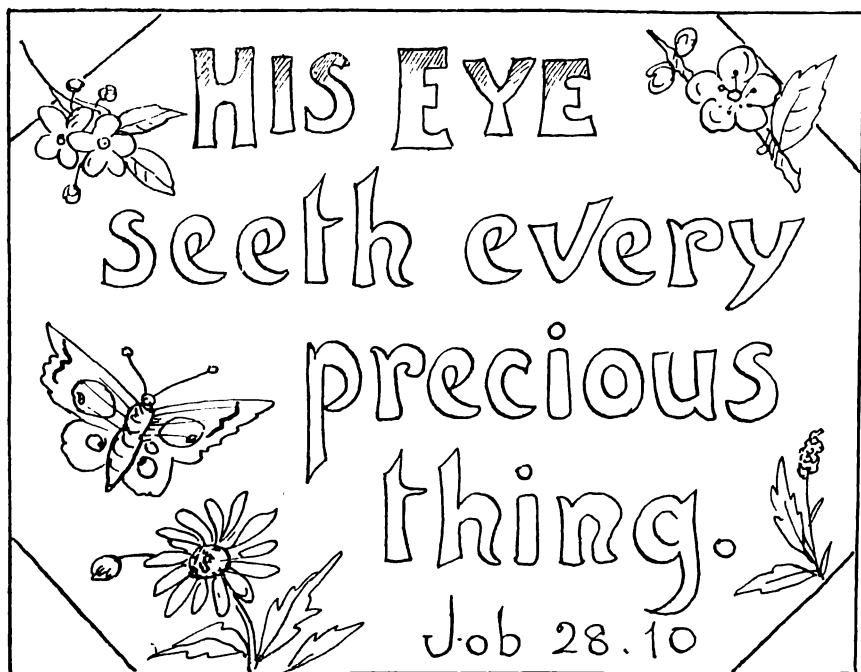 HIS EYE
seeth every
precious
thing.
Job 28.10